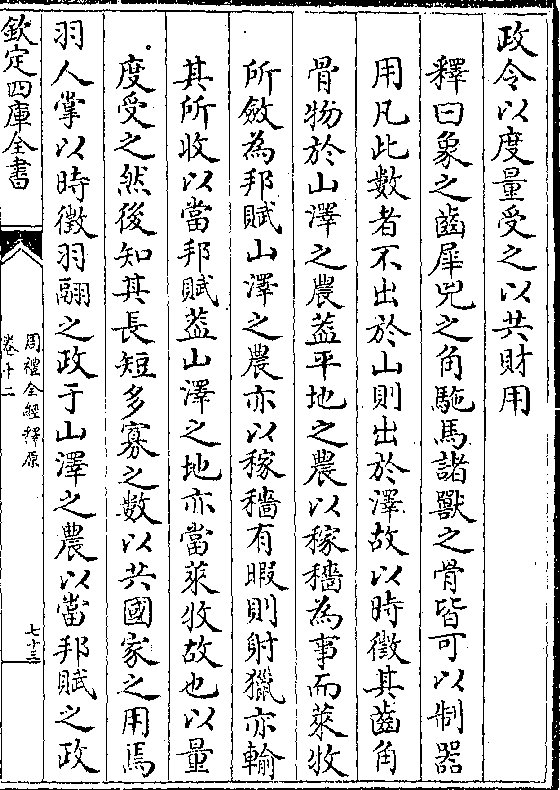 政令以度量受之以共財用
釋曰象之齒犀兕之角駞馬諸獸之骨皆可以制器
用凡此數者不出於山則出於澤故以時徵其齒角
骨物於山澤之農葢平地之農以稼穡為事而萊牧
所斂為邦賦山澤之農亦以稼穡有暇則射獵亦輸
其所收以當邦賦葢山澤之地亦當萊牧故也以量
度受之然後知其長短多寡之數以共國家之用焉
羽人掌以時徵羽翮之政于山澤之農以當邦賦之政
欽定四庫全書
周禮全經釋原
卷十二
七十三